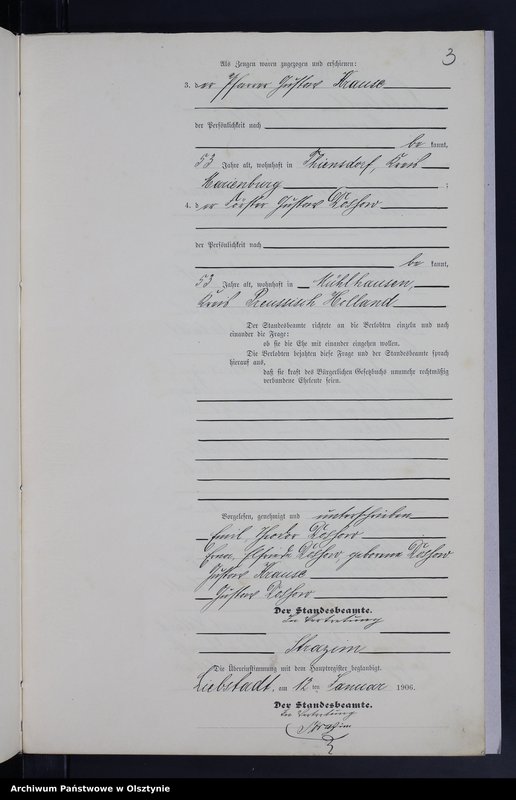 3
Als Zeugen waren zugezogen und erschienen:
3. der Pfarrer Gustav Krause
der Persönlichkeit nach
be kannt,
53 Jahre alt, wohnhaft in Thiensdorf, Kreis
Marienburg ;
4. der Förster Gustav
der Persönlichkeit nach
be kannt,
53 Jahre alt, wohnhaft in Mühlhausen,
Kreis Preussisch Holland
Der Standesbeamte richtete an die Verlobten einzeln und nach
einander die Frage:
ob sie die Ehe mit einander eingehen wollen.
Die Verlobten bejahten diese Frage und der Standesbeamte sprach
hierauf aus,
daß sie kraft des Bürgerlichen Gesetzbuchs nunmehr rechtmäßig
verbundene Eheleute seien.
Vorgelesen, genehmigt und unterschrieben
Emil Theodor
geborene
Gustav Krause
Gustav
Der Standesbeamte.
In Vertretung
Strazim
Die Übereinstimmung mit dem Hauptregister beglaubigt.
Liebstadt, am 12 ten Januar 1906.
Der Standesbeamte.
In Vertretung
Strazim
Archiwum Państwowe w Olsztynie